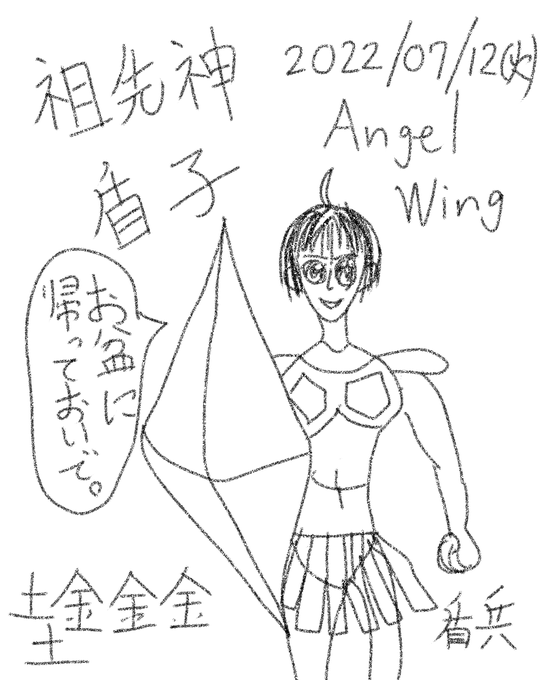 祖先神
盾子
2022/07/12(火)
Angel
Wing
お盆に
帰っておいで。
土金金金
土
番兵